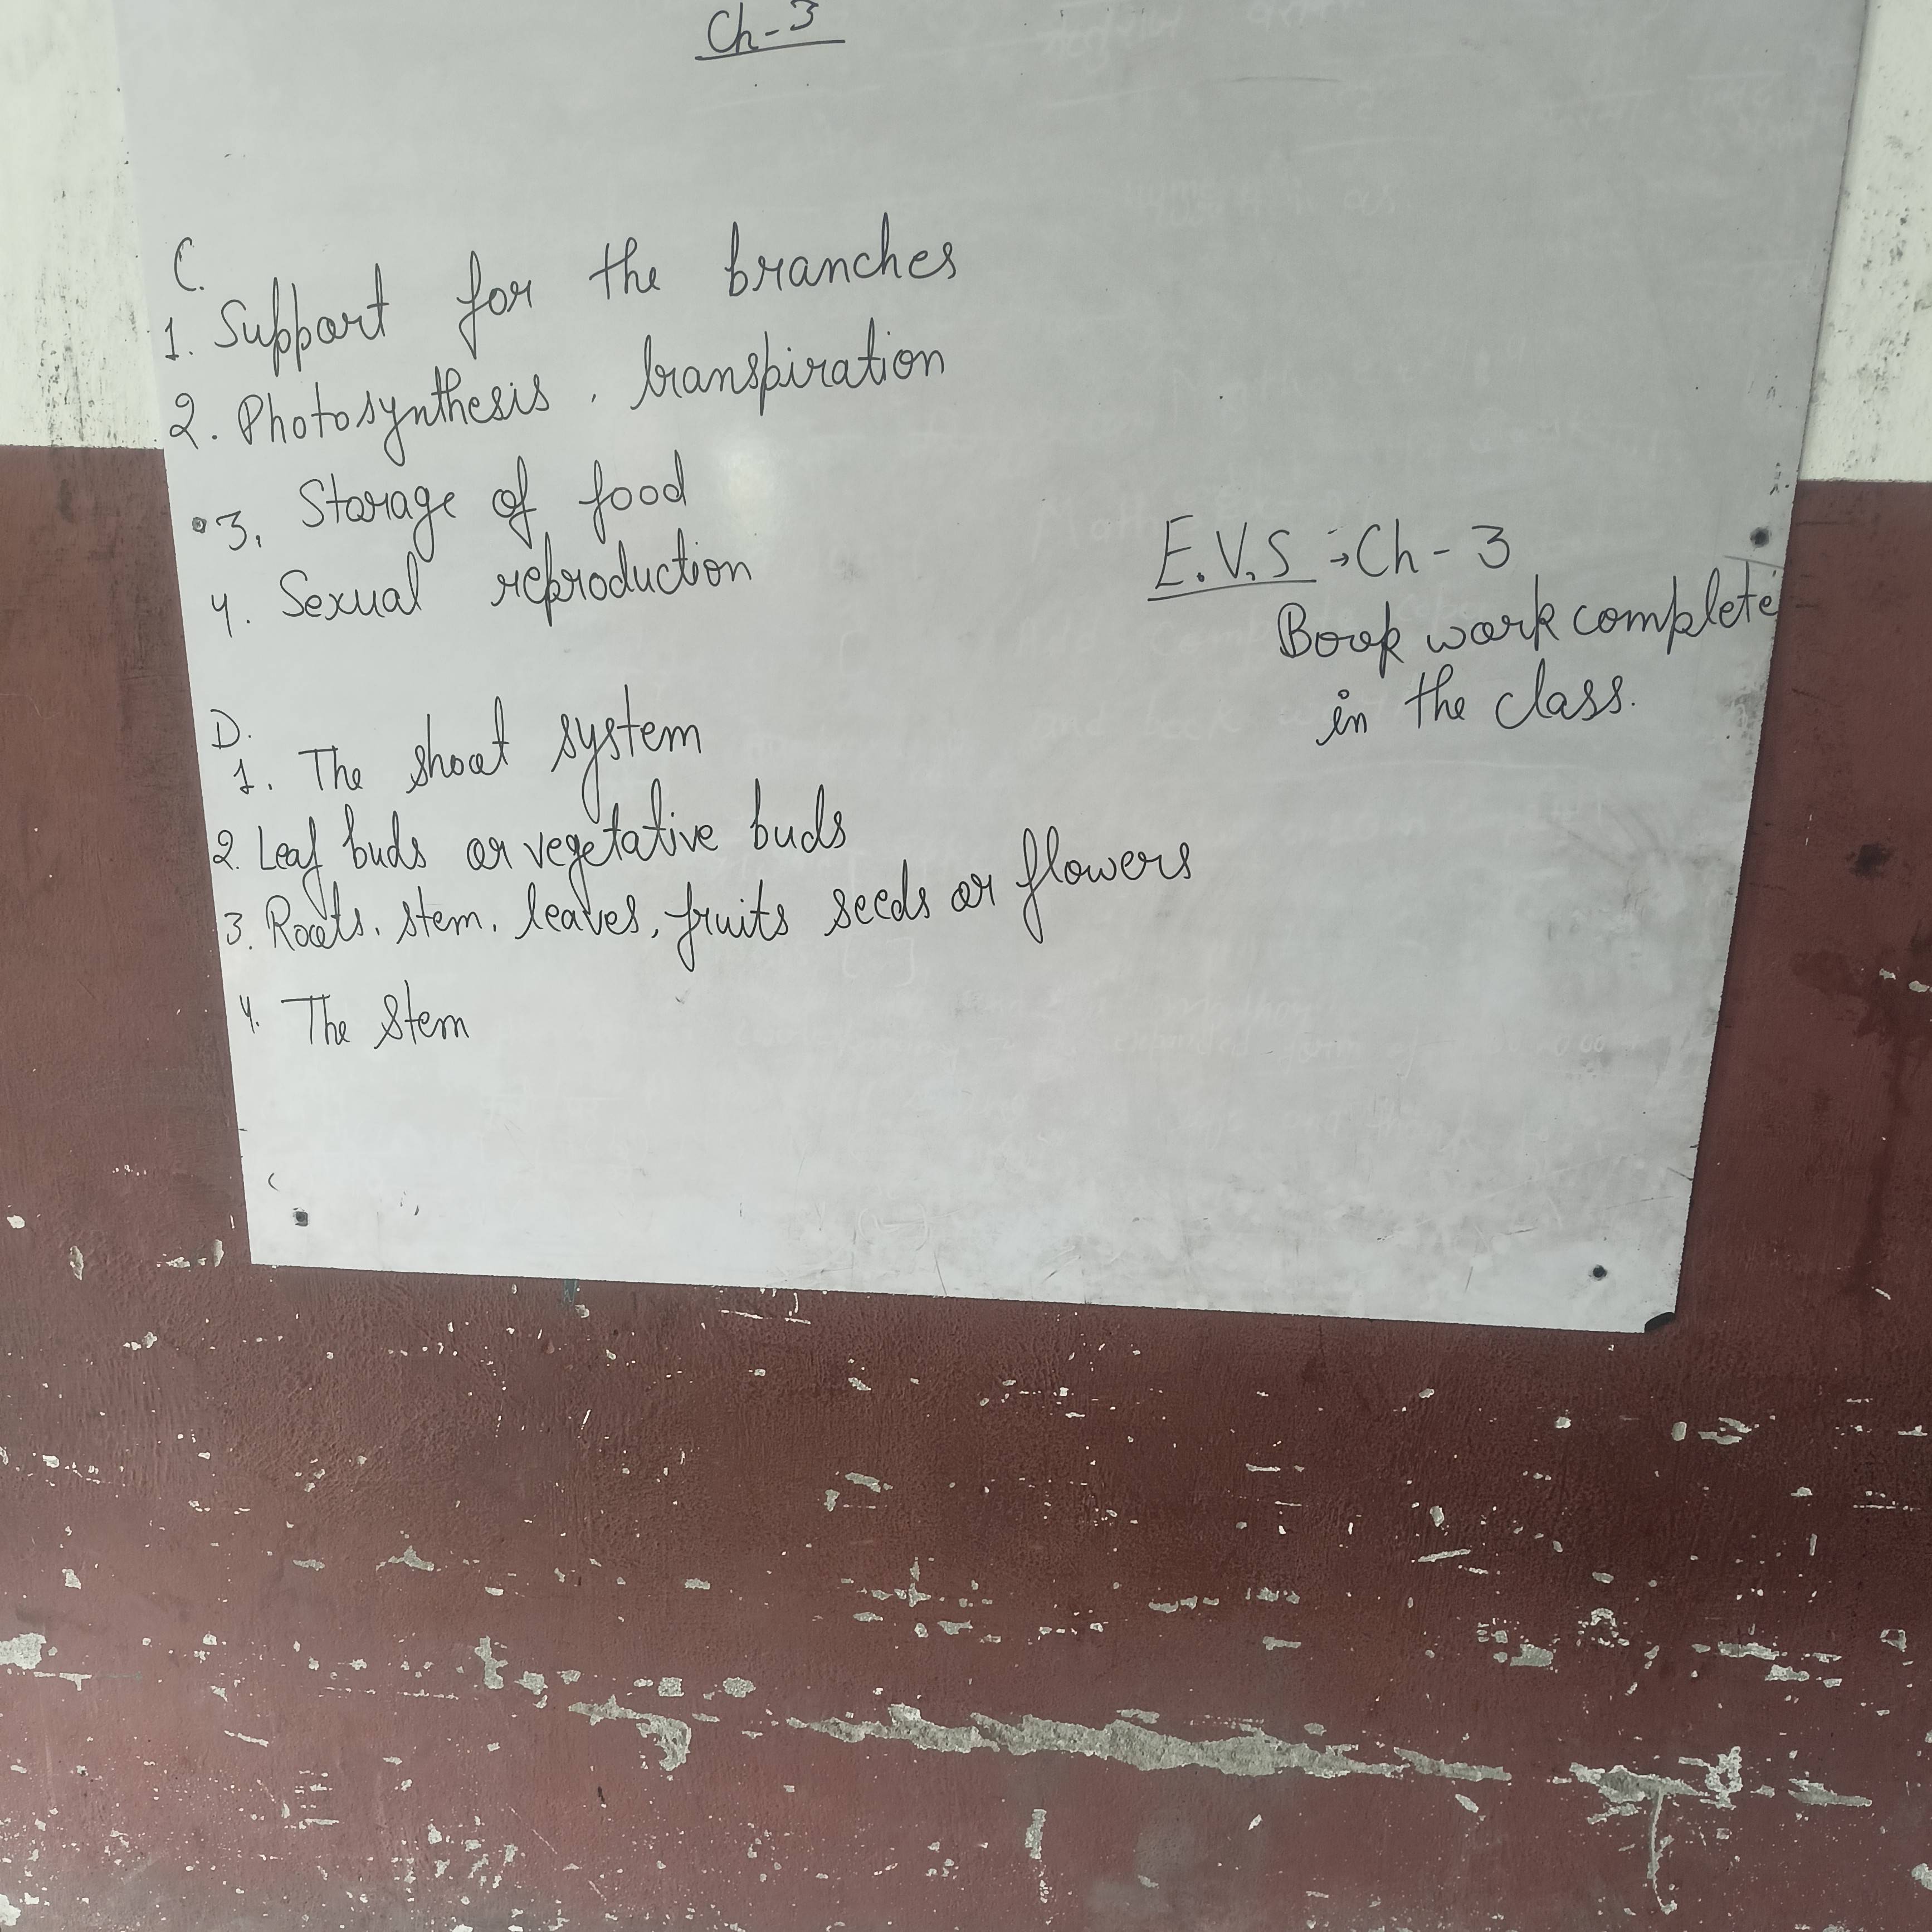 Ch-3
C.
1. Support for the branches
2. Photosynthesis, transpiration
3. Storage of food
4. Sexual reproduction
D.
1. The shoot system
2. Leaf buds or vegetative buds
3. Roots, stem, leaves, fruits seeds or flowers
4. The Stem
E.V.S :→ Ch-3
Book work complete
in the class.